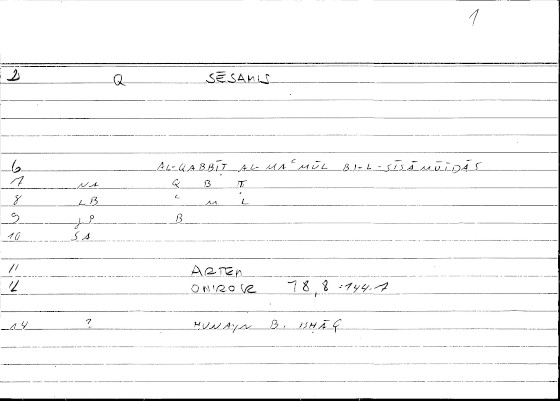 1
2 Q SĒSAMIS
6 AL-QABBĪṬ AL-MAʿMŪL BI-L-SĪSĀMŪIDĀS
7 NA Q B Ṭ
8 LB ʿ M L
9 JP B
10 SA
11 ARTEM
12 ONIROCR 78,8 = 144.7
14 ? ḤUNAYN B. ISḤĀQ